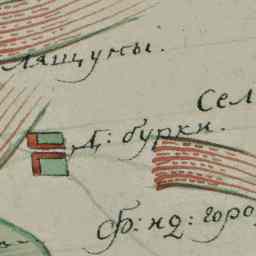 Лящуны.
Сел
Д: бурки.
горо